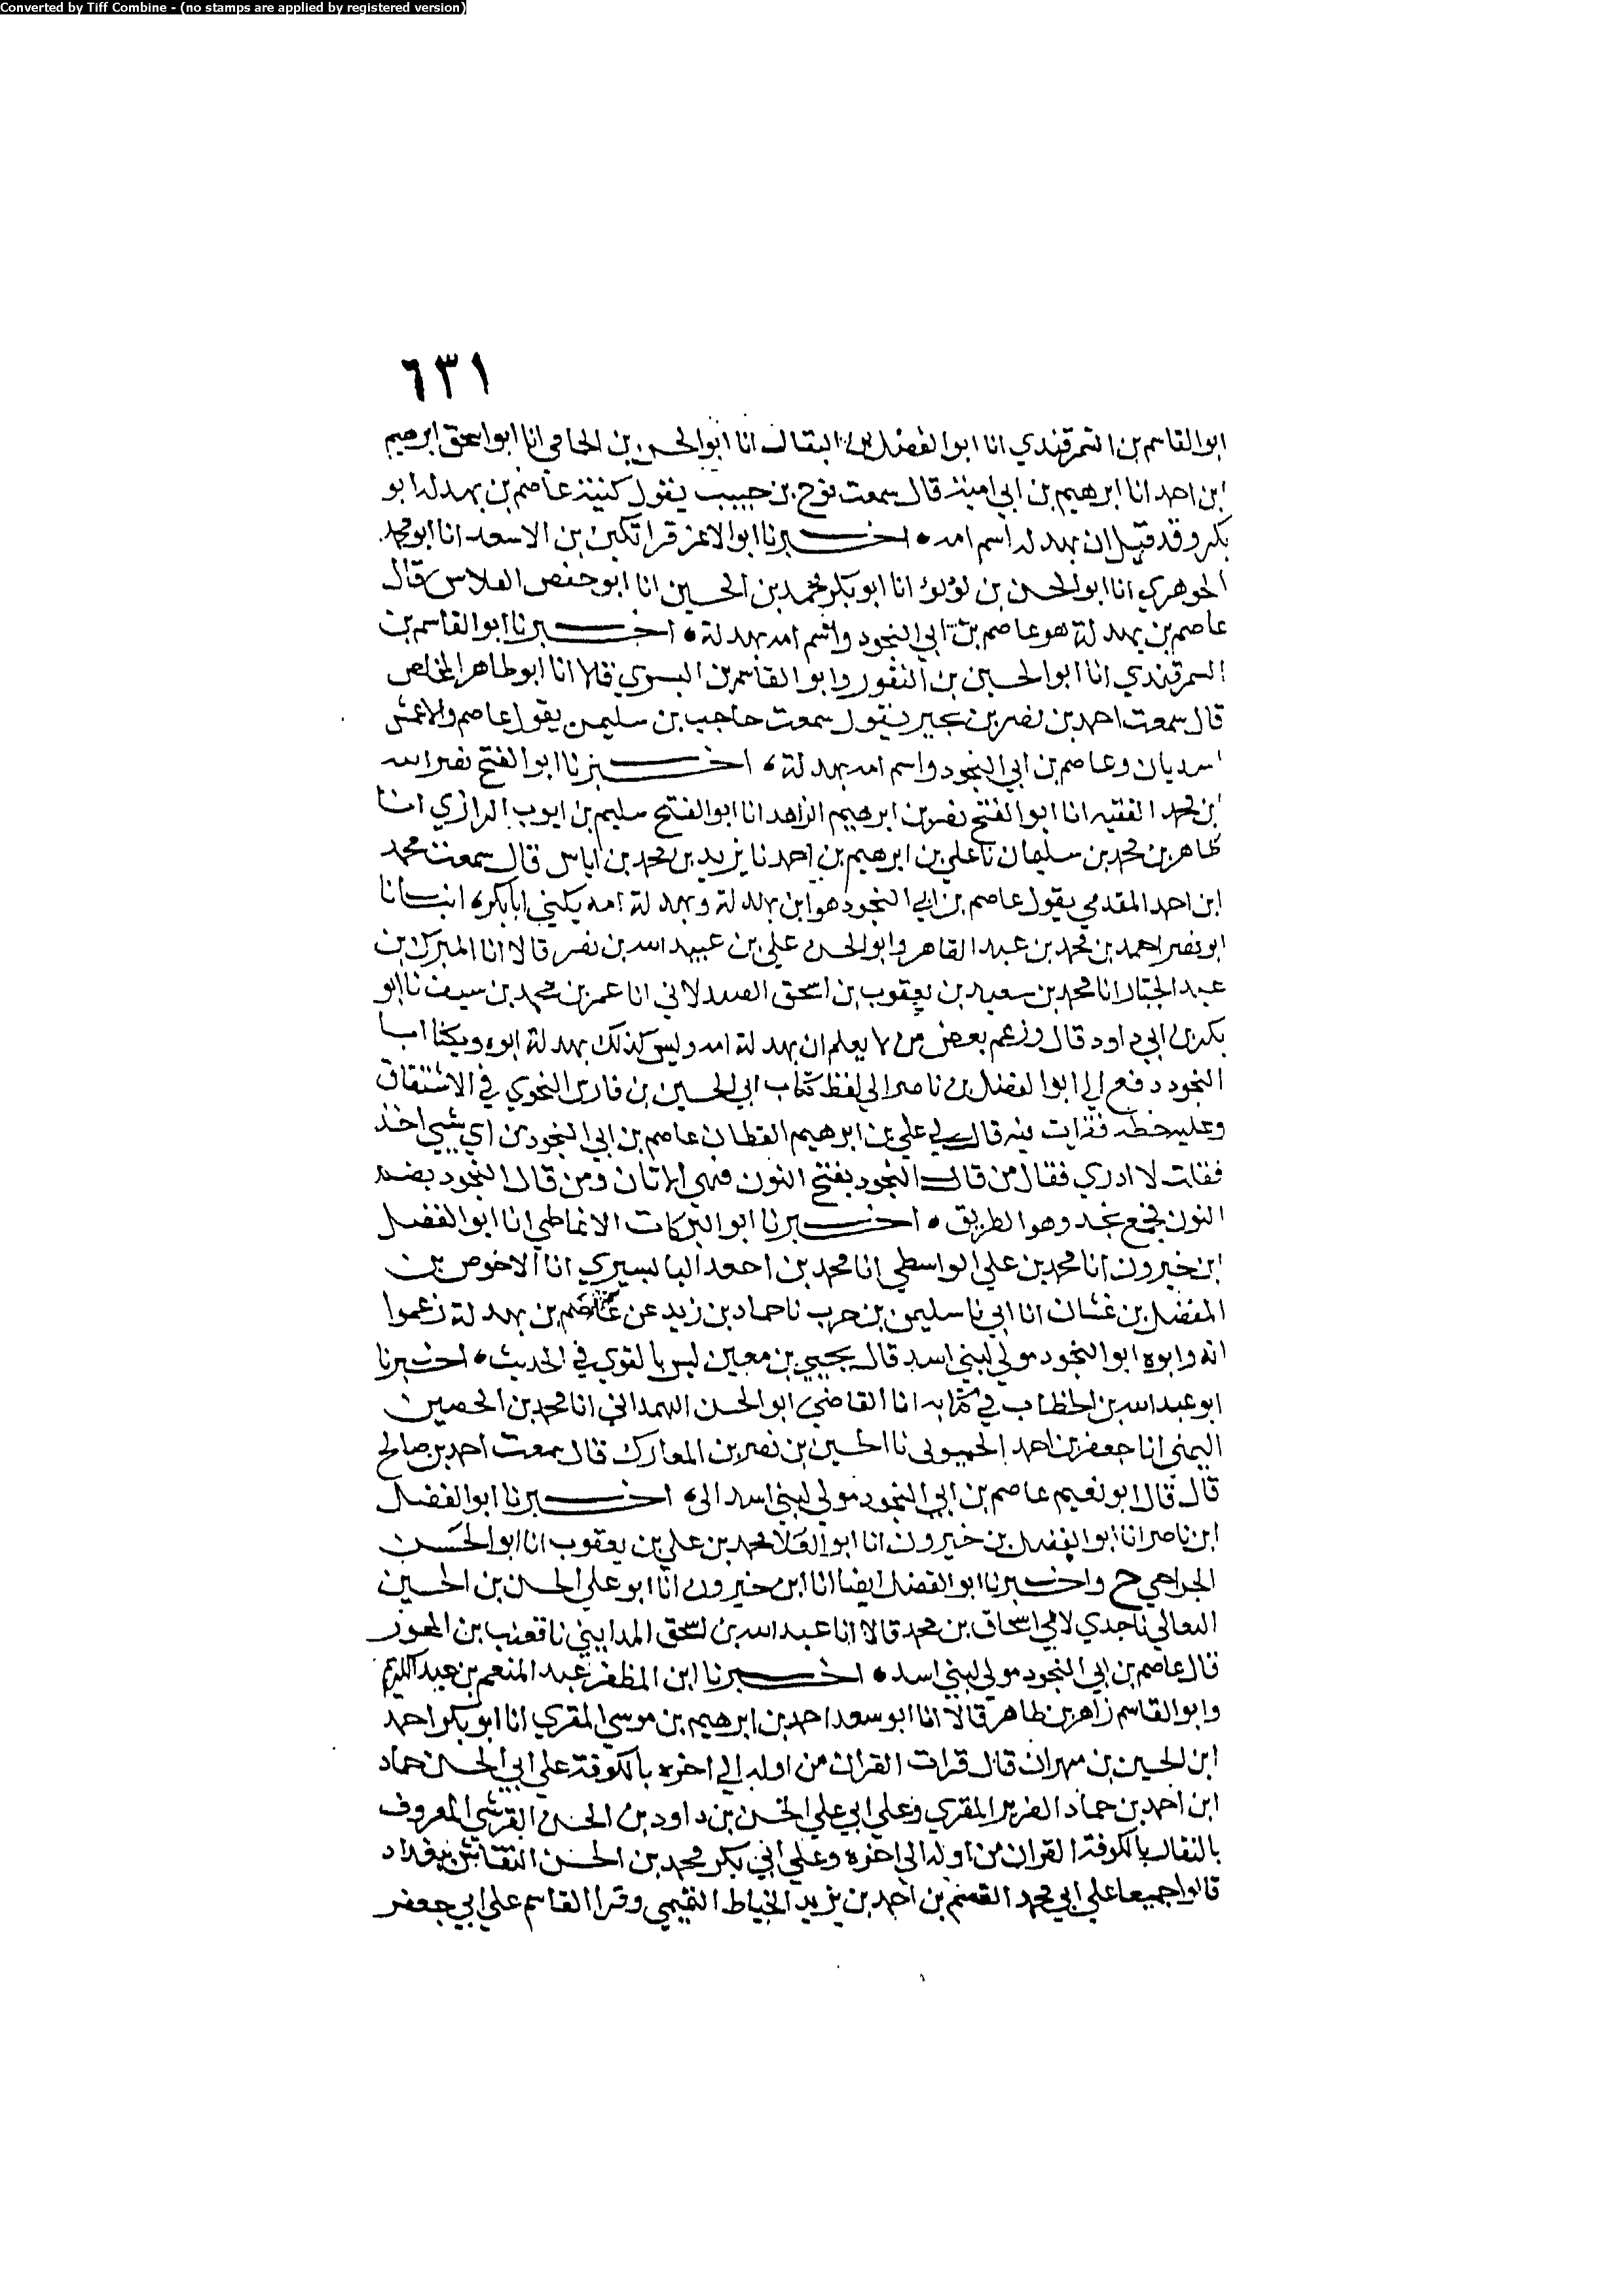 Converted by Tiff Combine - (no stamps are applied by registered version)
٦٣١
ابو القاسم بن السمرقندي انا ابو الفضل بن البقال انا ابو الحسن بن الحمامي انا ابو اسحق ابرهيم
ابن احمد انا ابرهيم بن ابي امية قال سمعت نوح بن حبيب يقول كنية عاصم بن بهدله ابو
بكر وقد قيل ان بهدله اسم امه • اخــبرنا ابو الاعز قراتكين بن الاسعد انا ابو محمد
الجوهري انا ابو الحسن بن لؤلؤ انا ابو بكر محمد بن الحسين انا ابو حفص الفلاس قال
عاصم بن بهدلة هو عاصم بن ابي النجود واسم امه بهدلة • اخــبرنا ابو القاسم بن
السمرقندي انا ابو الحسين بن النقور وابو القاسم بن البسري قالا انا ابو طاهر المخلص
قال سمعت احمد بن نصر بن بجير يقول سمعت حاجب بن سليمن يقول عاصم والاعمش
اسديان وعاصم بن ابي النجود واسم امه بهدلة، اخــبرنا ابو الفتح نصر الله
ابن محمد الفقيه انا ابو الفتح نصر بن ابرهيم الزاهد انا ابو الفتح سليم بن ايوب الرازي انا
طاهر بن محمد بن سليمان نا علي بن ابرهيم بن احمد نا يزيد بن محمد بن اياس قال سمعت محمد
ابن احمد المقدمي يقول عاصم بن ابي النجود هو ابن بهدلة وبهدلة امه يكنى ابا بكر، انبــانا
ابو نصر احمد بن محمد بن عبد القاهر وابو الحسن علي بن عبيد الله بن نصر قالا انا المبرك بن
عبد الجبار انا محمد بن سعيد بن يعقوب بن اسحق الصيدلاني انا عمر بن محمد بن سيف نا ابو
بكر بن ابي داود قال وزعم بعض من لا يعلم ان بهدلة امه وليس كذلك بهدلة ابوه ويكنا ابا
النجود دفع الي ابو الفضل بن ناصر الحافظ كتاب ابي الحسين بن فارس النحوي في الاشتقاق
وعليه خطه فقرات فيه قال لي علي بن ابرهيم القطان عاصم بن ابي النجود من اي شيي اخذ
فقلت لا ادري فقال من قال النجود بفتح النون فهي الاتان ومن قال النجود بضم
النون فجمع نجد وهو الطريق • اخــبرنا ابو البركات الانماطي انا ابو الفضل
ابن خيرون انا محمد بن علي الواسطي انا محمد بن احمد البابسيري انا الاحوص بن
المفضل بن غسان انا ابي نا سليمن بن حرب نا حماد بن زيد عن عاصم بن بهدلة زعموا
انه وابوه ابو النجود مولي لبني اسد قال يحيي بن معين ليس بالقوي في الحديث • اخــبرنا
ابو عبد الله بن الحطاب في كتابه انا القاضي ابو الحسن الهمداني انا محمد بن الحصين
اليمني انا جعفر بن احمد نا الحسين بن نصر بن المعارك قال سمعت احمد بن صالح
قال قال ابو نعيم عاصم بن ابي النجود مولي لبني اسد الى، اخــبرنا ابو الفضل
ابن ناصر انا ابو الفضل بن خيرون انا ابو العلا محمد بن علي بن يعقوب انا ابو الحسن
الجراحي ح واخــبرنا ابو الفضل ايضا انا ابن خيرون انا ابو علي الحسن بن الحسين
النعالي نا جدي لامي اسحاق بن محمد قالا انا عبد الله بن اسحق المدايني نا قعنب بن المحرر
قال عاصم بن ابي النجود مولي لبني اسد • اخــبرنا ابن المظفر عبد المنعم بن عبد الكريم
وابو القاسم زاهر بن طاهر قالا انا ابو سعد احمد بن ابرهيم بن موسي المقري انا ابو بكر احمد
ابن الحسين بن مهران قال قرات القران من اوله الي اخره بالكوفة علي ابي الحسن حماد
ابن احمد بن حماد الضرير المقري وعلي ابي علي الحسن بن داود بن الحسن القرشي المعروف
بالنقار بالكوفة القران من اوله الى اخره وعلي ابي بكر محمد بن الحسن النقاش ببغداد
قالوا جميعا علي ابي محمد القسم بن احمد بن يزيد الخياط التميمي وقرا القاسم علي ابي جعفر